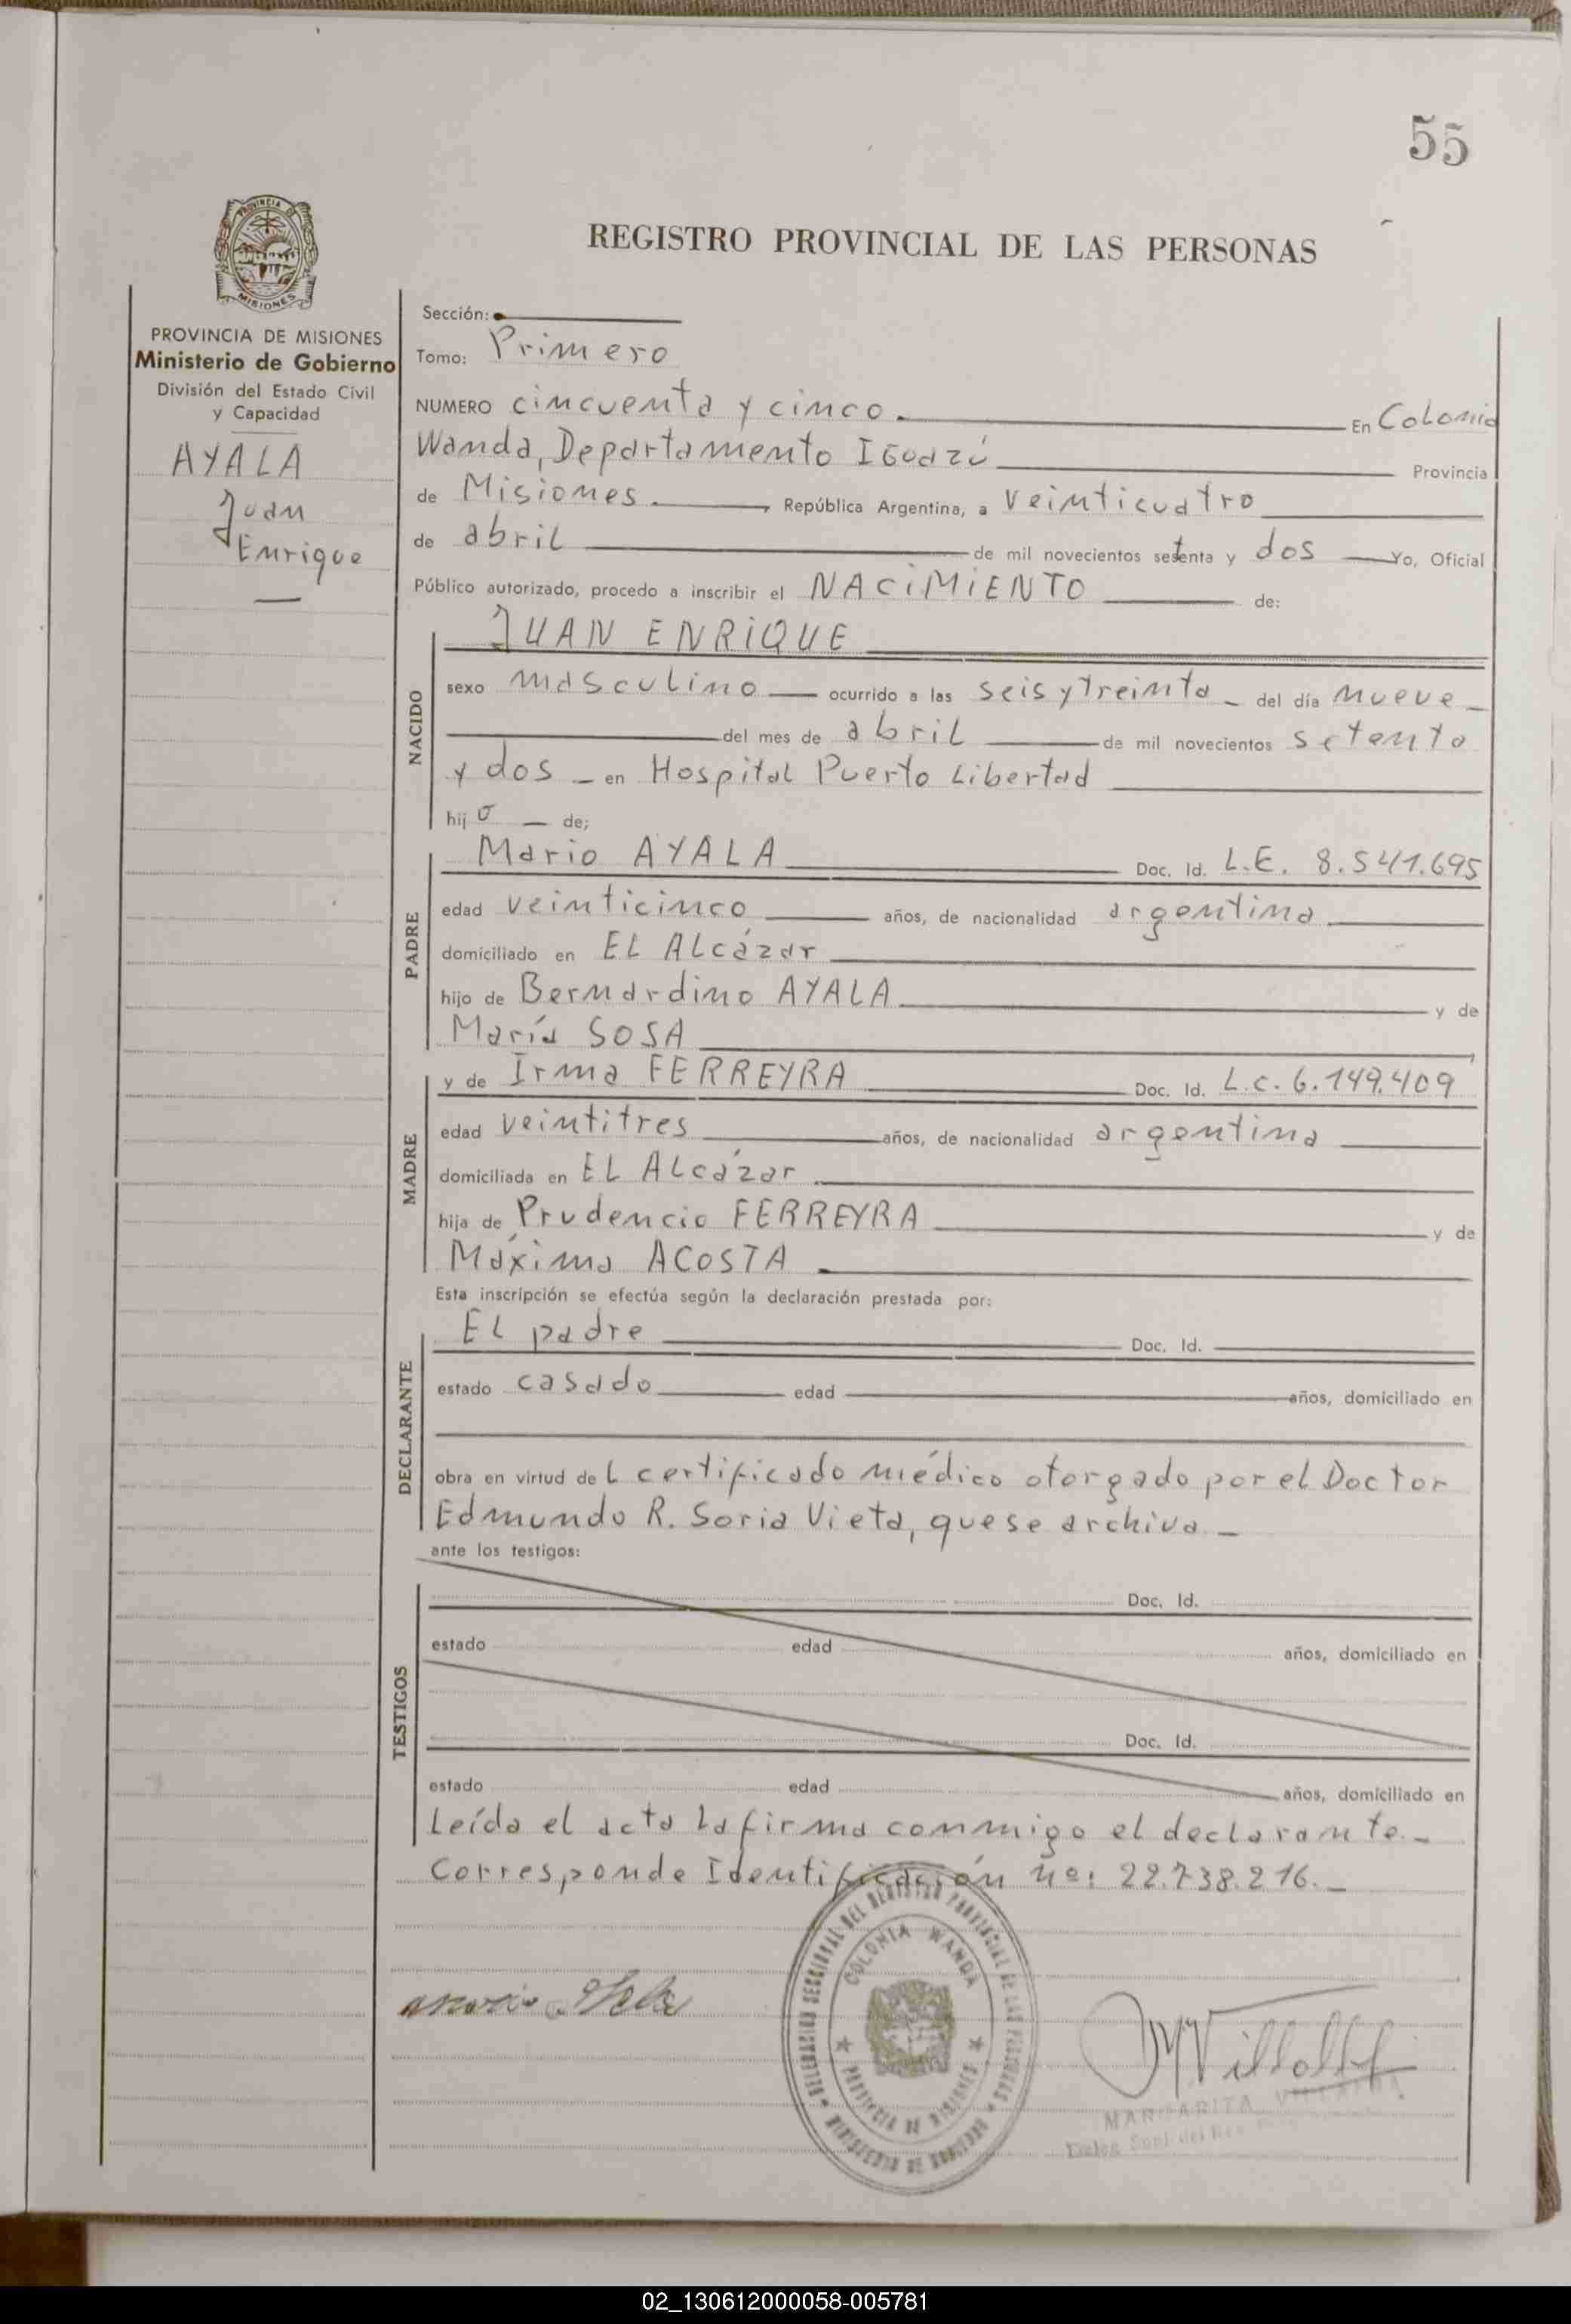 55
PROVINCIA DE
MISIONES
REGISTRO PROVINCIAL DE LAS PERSONAS
PROVINCIA DE MISIONES
Ministerio de Gobierno
División del Estado Civil
y Capacidad
AYALA
Juan
Enrique
Sección:
Tomo: Primero
NUMERO cincuenta y cinco. En Colonia
Wanda, Departamento IGuazú Provincia
de Misiones. República Argentina, a veinticuatro
de abril de mil novecientos setenta y dos Yo, Oficial
Público autorizado, procedo a inscribir el NACiMiENTO de:
JUAN ENRiQUE
NACIDO
sexo masculino ocurrido a las seis y treinta del día nueve
del mes de abril de mil novecientos setenta
y dos en Hospital Puerto Libertad
hijo de;
PADRE
Mario AYALA Doc. Id. L.E. 8.541.695
edad veinticinco años, de nacionalidad argentina
domiciliado en EL Alcázar
hijo de Bernardino AYALA y de
María SOSA
MADRE
y de Irma FERREYRA Doc. Id. L.C. 6.149.409
edad veintitres años, de nacionalidad argentina
domiciliada en EL Alcázar
hija de Prudencio FERREYRA y de
Máxima ACOSTA
Esta inscripción se efectúa según la declaración prestada por:
DECLARANTE
El padre Doc. Id.
estado casado edad años, domiciliado en
obra en virtud del certificado médico otorgado por el Doctor
Edmundo R. Soria Vieta, que se archiva.
ante los testigos:
TESTIGOS
Doc. Id.
estado edad años, domiciliado en
Doc. Id.
estado edad años, domiciliado en
Leída el acta la firma conmigo el declarante.
Corresponde Identificación nº: 22.738.216.
DELEGACION SECCIONAL DEL REGISTRO PROVINCIAL DE LAS PERSONAS
MINISTERIO DE GOBIERNO
COLONIA WANDA
PROVINCIA DE MISIONES
MARGARITA
02_130612000058-005781